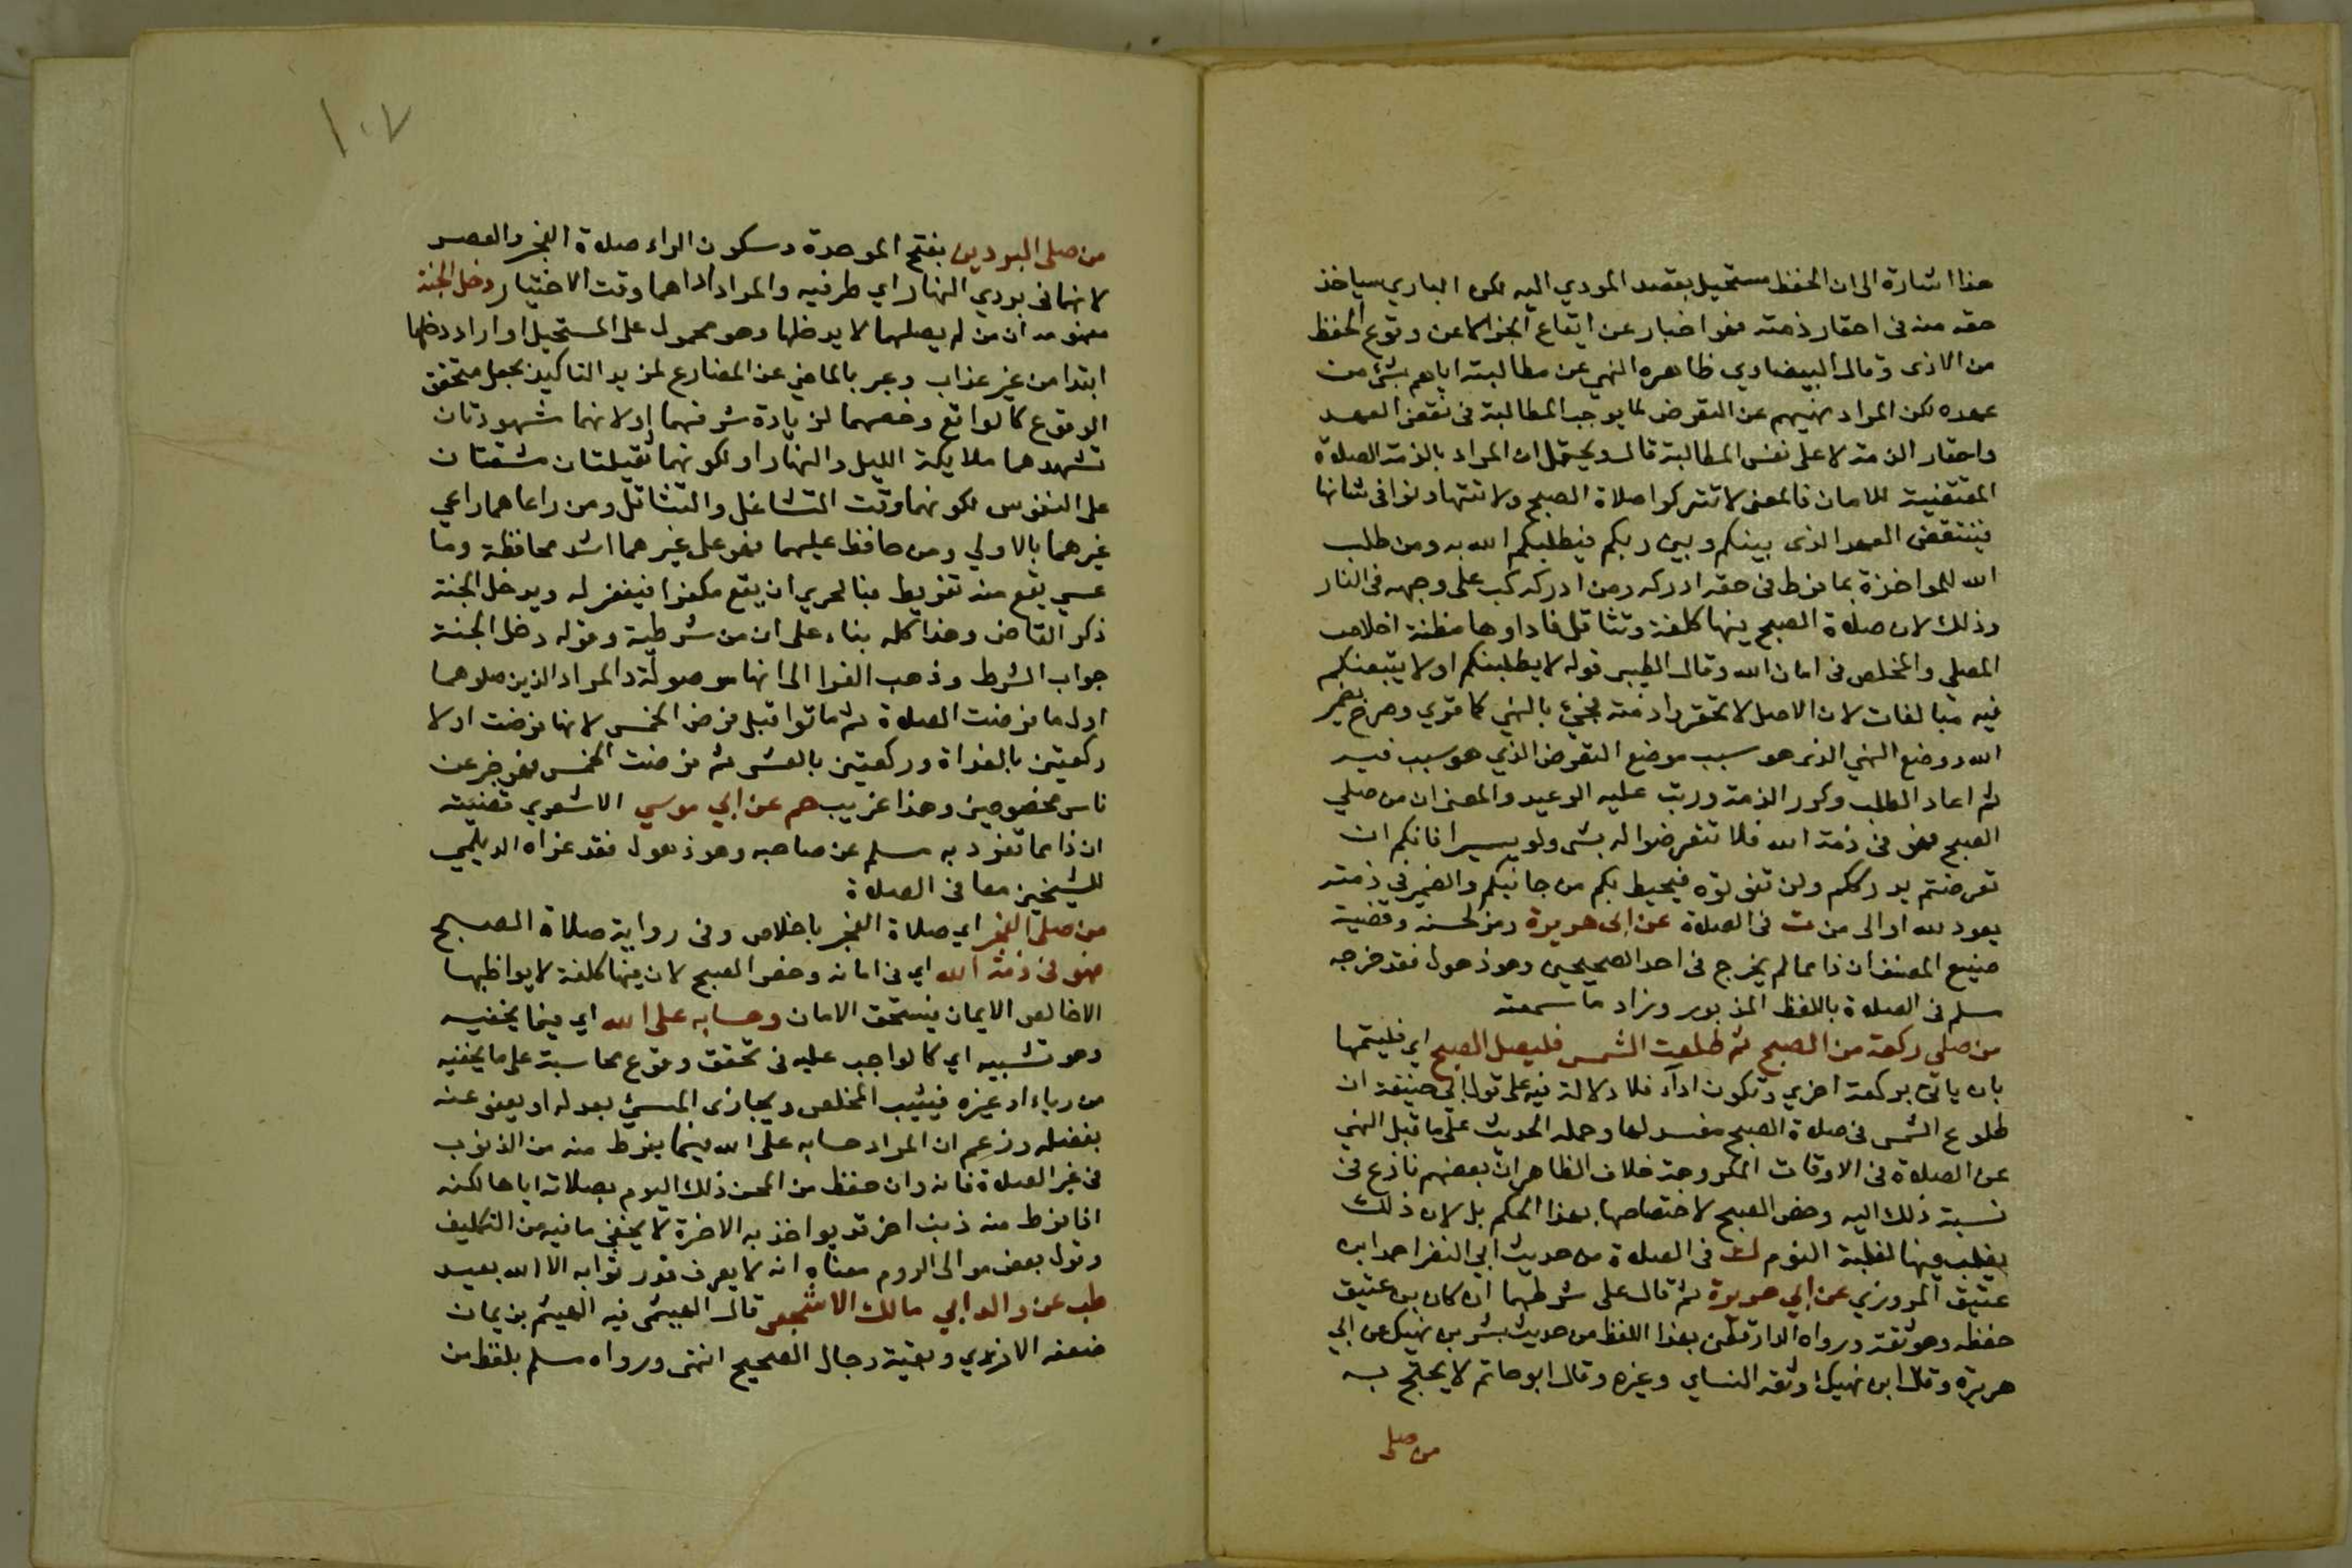 هذا اشارة الى ان الحفظ مستحيل بقصد المودي اليه لكون الباري سياخذ
حقه منه في احقار ذمته فهو اخبار عن ايقاع الجزا لا عن وقوع الحفظ
من الاذى وقال البيضاوي ظاهره النهي عن مطالبته اياهم بشئ من
عهده لكن المراد نهيهم عن التعرض لما يوجب المطالبة في نقض العهد
واحقار الذمة لا على نفس المطالبة قال ويحتمل ان المراد بالذمة الصلاة
المقتضية للامان فالمعنى لا تتركوا صلاة الصبح ولا تتهاونوا في شانها
فينتقض العهد الذى بينكم وبين ربكم فيطلبكم الله به ومن طلب
الله للمواخذة بما فرط في حقه ادركه ومن ادركه كب على وجهه في النار
وذلك لان صلاة الصبح فيها كلفة وتثاقل فاداوها مظنة اخلاص
المصلى والمخلص في امان الله وقال الطيبي قوله لا يطلبنكم او لا يتبعنكم
فيه مبالغات لان الاصل لا تحقروا ذمته فجئ بالنهي كما قوي وصرح بضمير
الله ووضع النهي الذى هو سبب موضع التعرض الذي هو سبب فيه
ثم اعاد الطلب وكرر الذمة ورتب عليه الوعيد والمعنى ان من صلي
الصبح فهو في ذمة الله فلا تتعرضوا له بشى ولو يسيرا فانكم ان
تعرضتم يدرككم ولن تفوتوه فيحيط بكم من جانبكم والضمير في ذمته
يعود لله او الى من ت في الصلاة عن ابى هريرة ورمز لحسنه وقضية
صنيع المصنف ان ذا مما لم يخرج في احد الصحيحين وهو ذهول فقد خرجه
مسلم في الصلاة باللفظ المزبور وزاد ما سمعته
من صلي ركعة من الصبح ثم طلعت الشمس فليصل الصبح اي فليتمها
بان ياتى بركعة اخري وتكون اداء فلا دلالة فيه على قول ابي حنيفة ان
طلوع الشمس في صلاة الصبح مفسد لها وحمله الحديث على ما قبل النهي
عن الصلاة في الاوقات المكروهة خلاف الظاهر ان بعضهم نازع في
نسبة ذلك اليه وخص الصبح لا ختصاصها بهذا الحكم بل لان ذلك
يغلب فيها لغلبة النوم ك في الصلاة من حديث ابي النضر احد ابن
عتيق المروزي عن ابي هريرة ثم قال على شرطهما ان كان بن عتيق
حفظه وهو ثقة ورواه الدارقطني بهذا اللفظ من حديث بشر بن نهيك عن ابي
هريرة وقال ابن نهيك وثقه النساي وغيره وقال ابو حاتم لا يحتج به
من صلى
١٠٧
من صلى البردين بفتح الموحدة وسكون الراء صلاة الفجر والعصر
لانهما في بردي النهار اي طرفيه والمراد اداهما وقت الاختيار دخل الجنة
مفهومه ان من لم يصلهما لا يدخلها وهو محمول على المستحيل او اراد دخلها
ابتدا من غير عذاب وعبر بالماضي عن المضارع لمزيد التاكيد بجعل متحقق
الوقوع كالواقع وخصهما لزيادة شرفهما او لانهما شهودتان
تشهدهما ملايكة الليل والنهار او لكونهما ثقيلتان مشقتان
على النفوس لكونهما وقت التشاغل والتثاقل ومن راعاهما راعي
غيرهما بالاولي ومن حافظ عليهما فهو على غيرهما اشد محافظة وما
عسي يقع منه تفريط فبالحري ان يقع مكفرا فيغفر له ويدخل الجنة
ذكر القاضي وهذا كله بناء على ان من شرطية وقوله دخل الجنة
جواب الشرط وذهب الفرا الى انها موصولة والمراد الذين صلوهما
اول ما فرضت الصلاة ثم ماتوا قبل فرض الخمس لانها فرضت اولا
ركعتين بالغداة وركعتين بالعشى ثم فرضت الخمس فهو خبر عن
ناس مخصوصين وهذا غريب حم عن ابي موسي الاشعري قضيته
ان ذا مما تفرد به مسلم عن صاحبه وهو ذهول فقد عزاه الديلمي
للشيخين معا في الصلاة
من صلى الفجر اي صلاة الفجر باخلاص وفى رواية صلاة الصبح
فهو في ذمة الله اي في امانه وخص الصبح لان فيها كلفة لا يواظبها
الا خالص الايمان فيستحق الامان وحسابه على الله اي فيما يخفيه
وهو تشبيه اي كالواجب عليه في تحقق وقوع محاسبة على ما يخفيه
من رياء او غيره فيثيب المخلص ويجازى المسئ بعدله او يعفو عنه
بفضله وزعم ان المراد حسابه على الله فيما يفرط منه من الذنوب
في غير الصلاة فانه وان حفظ من المحن ذلك اليوم بصلاته اياها لكنه
اذا فرط منه ذنب اخر قد يواخذ به الاخرة لا يخفى ما فيه من التكليف
وقول بعض موالى الروم معناه انه لا يعرف قدر ثوابه الا الله بعيد
طب عن والد ابي مالك الاشجعى قال الهيثمى فيه الهيثم بن يمان
ضعفه الازدي وبقية رجال الصحيح انتهى ورواه مسلم بلفظ من